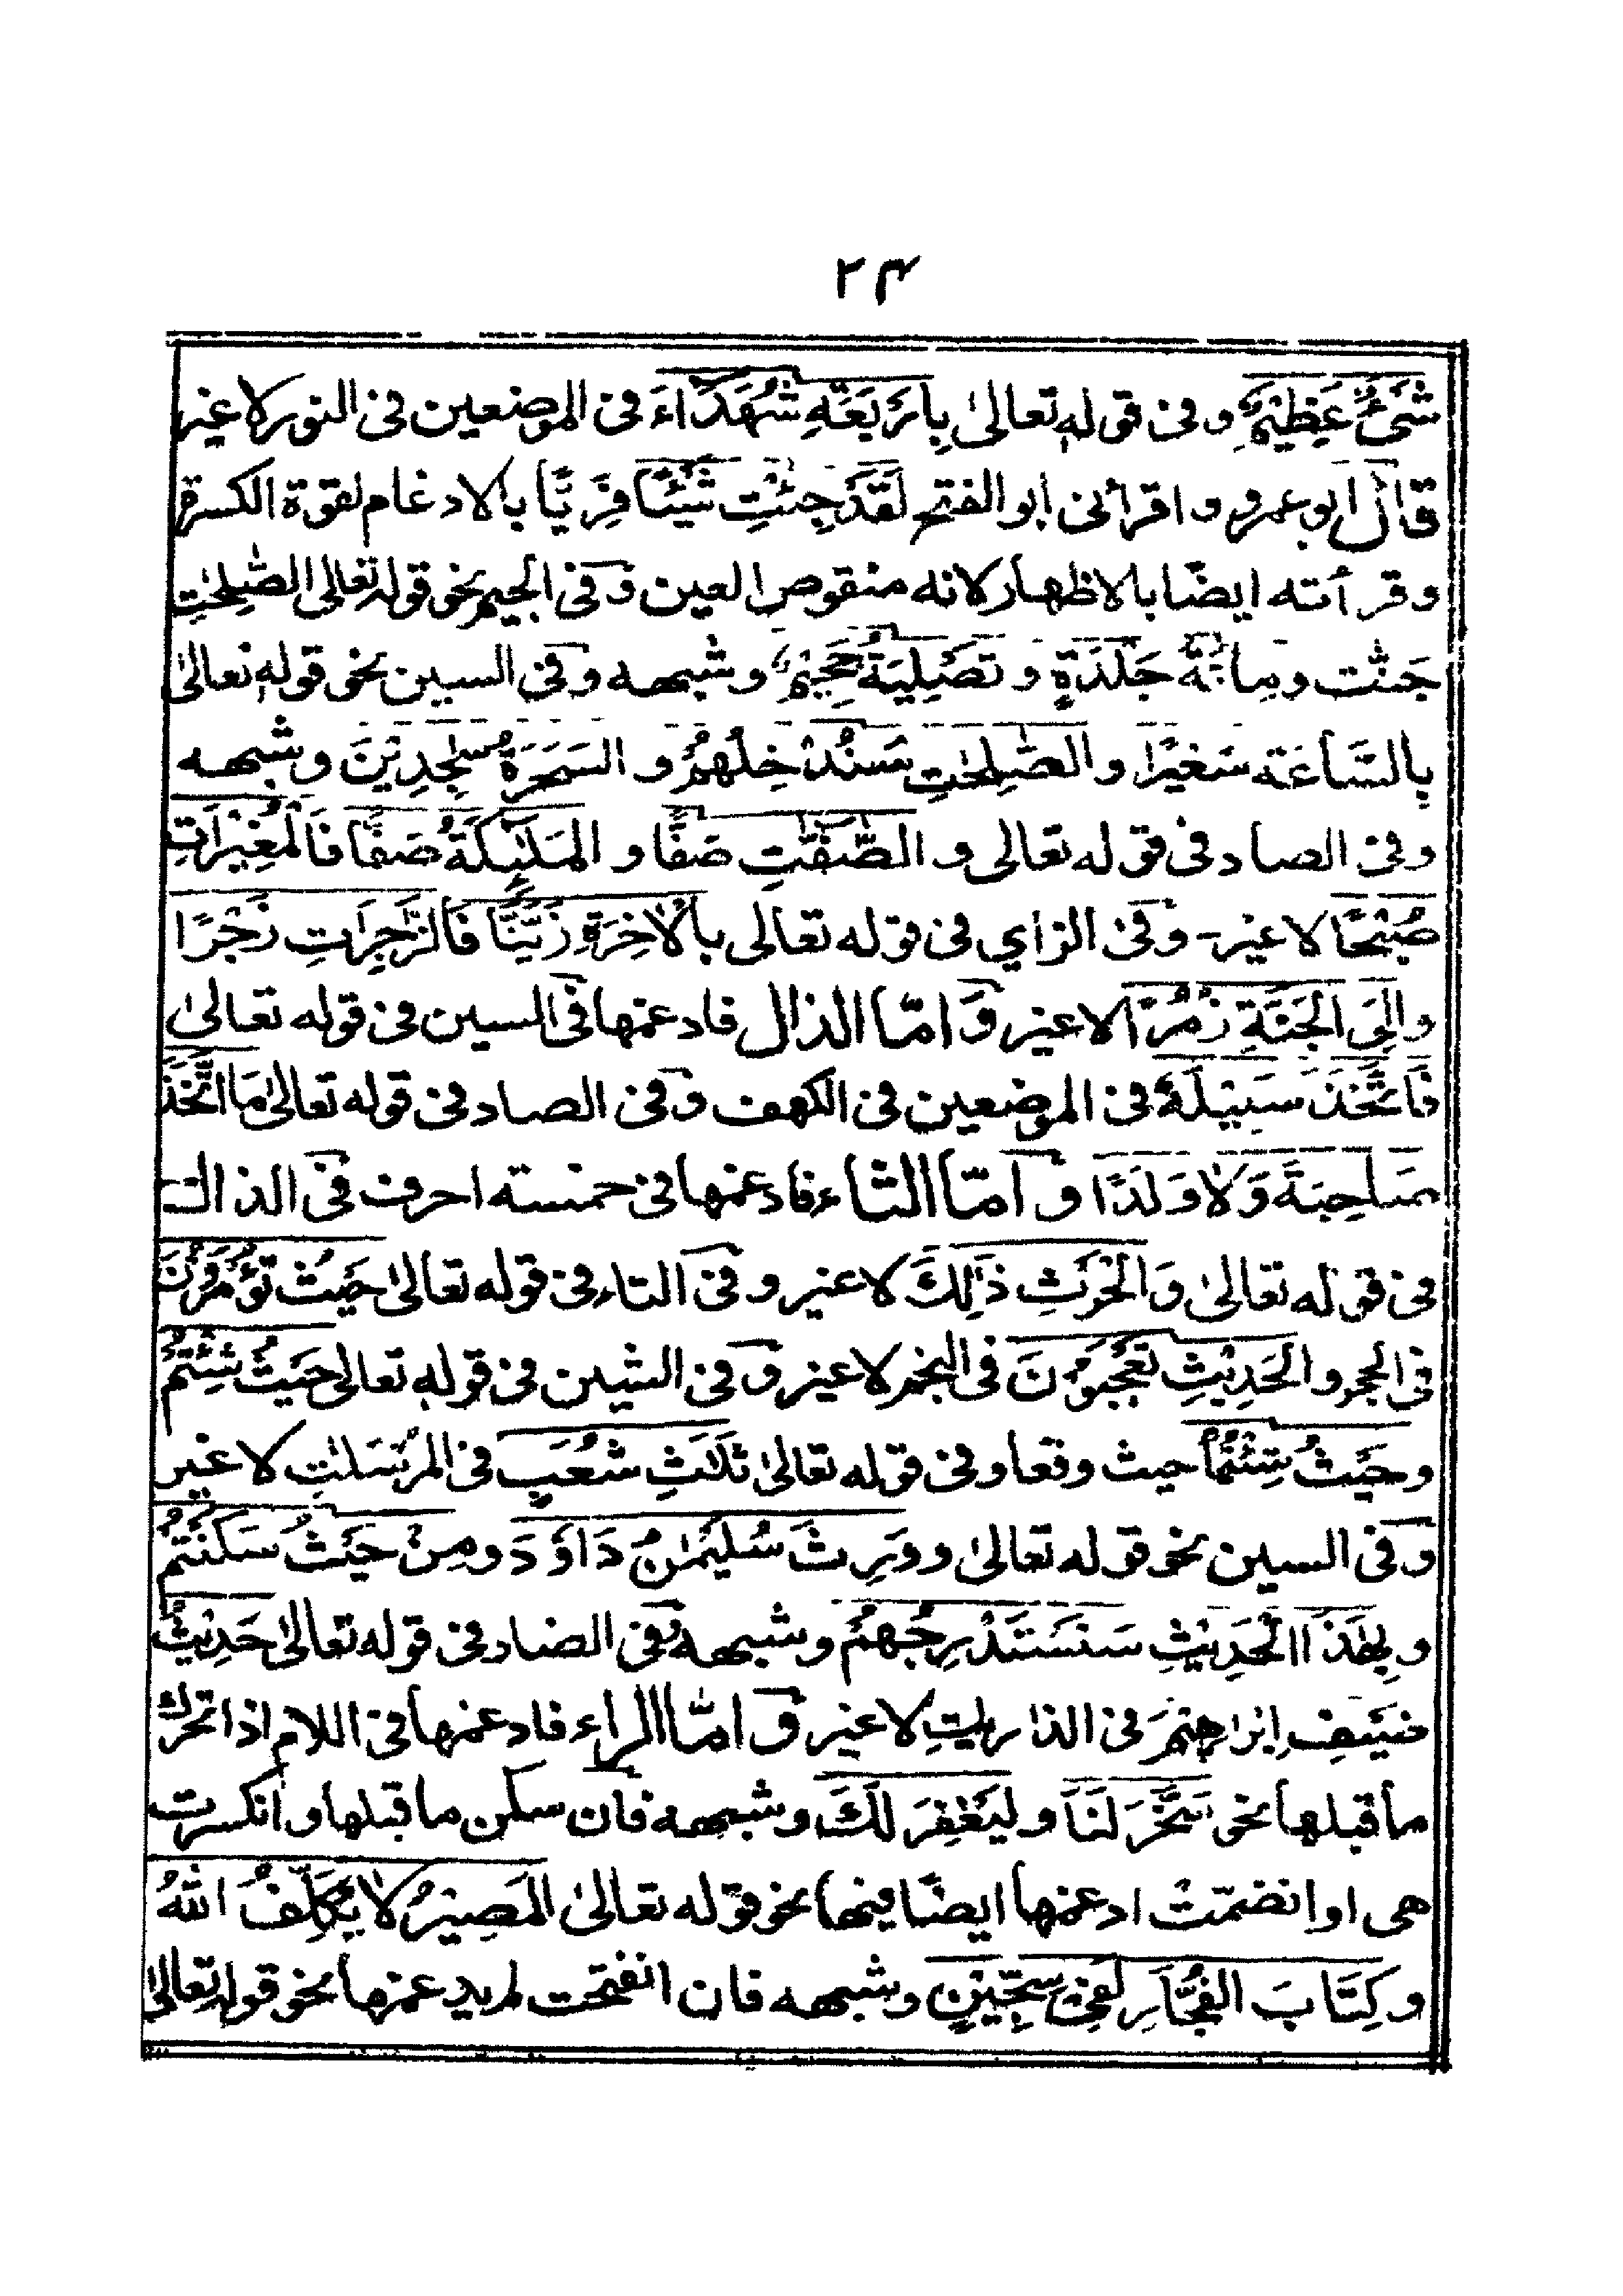 ۲۴
شَیْءٌ عَظِیْمٌ وفی قوله تعالیٰ بِاَرْبَعَةِ شُهَدَآءَ فی الموضعین فی النور لا غیر
قال ابو عمرو واقرأنی ابو الفتح لَقَدْ جِئْتِ شَیْئًا فَرِیًّا بالادغام لقوة الکسرة
وقرأته ایضًا بالاظهار لانه منقوص العین وفی الجیم نحو قوله تعالی الصّٰلِحٰتِ
جَنّٰت ومِائَةَ جَلْدَةٍ وتَصْلِیَةُ جَحِیْمٍ وشبهه وفی السین نحو قوله تعالیٰ
بِالسَّاعَة سَعِیْرًا والصّٰلِحٰتِ سَنُدْخِلُهُمْ والسَحَرَةُ سٰجِدِیْنَ وشبهه
وفی الصاد فی قوله تعالی والصّٰٓفّٰتِ صَفًّا والمَلٰٓئِکَةُ صَفًّا فَالْمُغِیْرَاتِ
صُبْحًا لا غیر - وفی الزاي فی قوله تعالی بِالْاٰخِرَةِ زَیَّنَّا فَالزّٰجِرَاتِ زَجْرًا
والِیَ الْجَنَّةِ زُمَرًا لا غیر وَامّا الذال فادغمها فی السین فی قوله تعالیٰ
فَاتَّخَذَ سَبِیْلَهٗ فی الموضعین فی الکهف وفی الصاد فی قوله تعالیٰ مَا اتَّخَذَ
صَاحِبَةً وَّلَا وَلَدًا وامّا الثاء فادغمها فی خمسة احرف فی الذال
فی قوله تعالیٰ وَالْحَرْثِ ذٰلِكَ لا غیر وفی التاء فی قوله تعالیٰ حَیْثُ تُؤْمَرُوْنَ
فی الحجر والْحَدِیْثِ تَعْجَبُوْنَ فی النجم لا غیر وفی الشین فی قوله تعالی حَیْثُ شِئْتُمْ
وحَیْثُ شِئْتُمَا حیث وقعا وفی قوله تعالیٰ ثَلٰثِ شُعَبٍ فی المرْسَلٰتِ لا غیر
وفی السین نحو قوله تعالیٰ ووَرِثَ سُلَیْمٰنُ دَاوٗدَ ومِنْ حَیْثُ سَکَنْتُمْ
وبِهٰذَا الْحَدِیْثِ سَنَسْتَدْرِجُهُمْ وشبهه وفی الضاد فی قوله تعالیٰ حَدِیْثُ
ضَیْفِ اِبْرَاهِیْمَ فی الذاریٰتِ لا غیر وامّا الراء فادغمها فی اللام اذا تحرك
ما قبلها نحو سَخَّرَ لَنَا ولِیَغْفِرَ لَكَ وشبهه فان سکن ما قبلها وانکسرت
هی او انضمّتْ ادغمها ایضًا فیها نحو قوله تعالیٰ الْمَصِیْرُ لَا یُکَلِّفُ اللّٰهُ
وکِتَابَ الفُجَّارِ لَفِیْ سِجِّیْنٍ وشبهه فان انفتحت لم یدغمها نحو قوله تعالیٰ